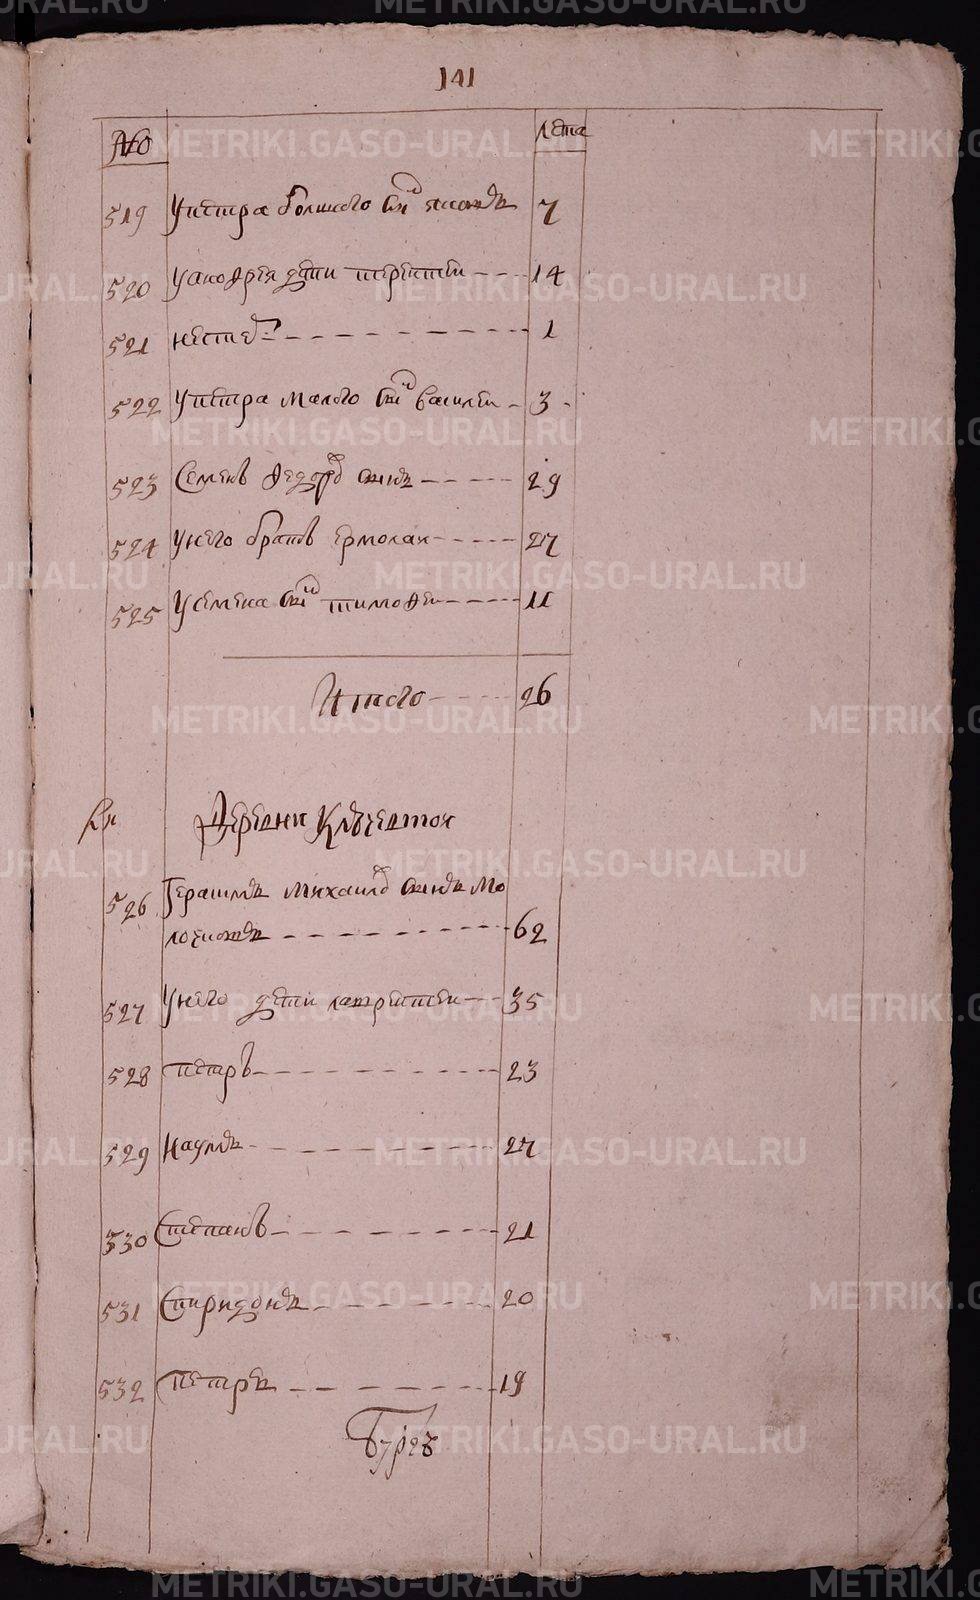 141
№ лета
519 У петра болшого снъ яковъ 7
520 У андрея дети терентеи 14
521 нестеръ 1
522 У петра малого снъ василеи 3
523 Семенъ федоровъ снъ 29
524 У него братъ ермолаи 27
525 У семена снъ тимофеи 11
Итого 26
Деревни
526 Герасимъ михаиловъ снъ Мо
лочковъ 62
527 У него дети лаврентеи 35
528 петръ 23
529 Наумъ 27
530 Степанъ 21
531 Спиридонъ 20
532 петръ 19
METRIKI.GASO-URAL.RU